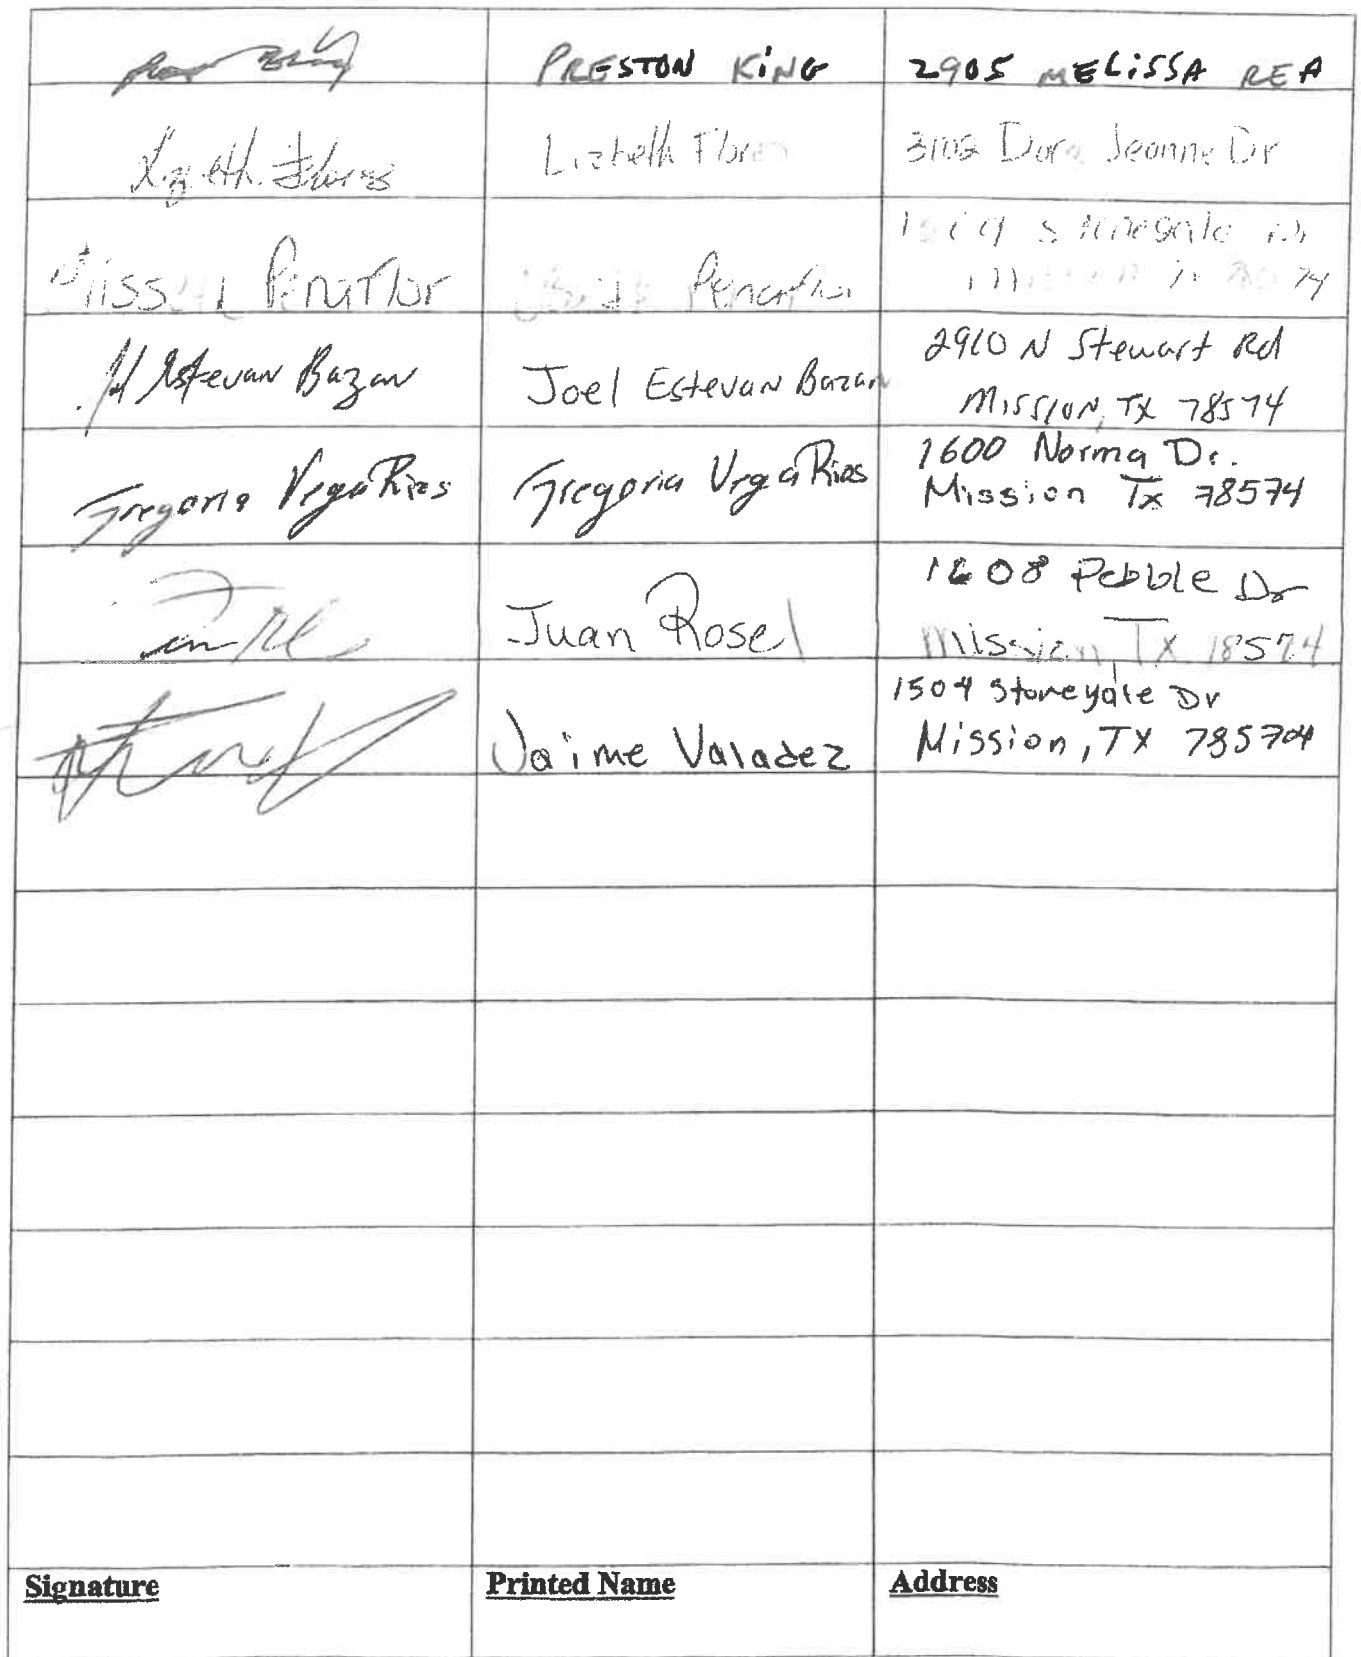 PRESTON KiNG
2905 MELiSSA REA
Lizbeth Flores
Lizbeth Flores
Dora Jeanne Dr
Penaflor
Penaflor
Estevan Bazan
Joel Estevan Bazan
2910 N Stewart Rd
Mission, TX 78574
Gregoria Vega Rios
Gregoria Vega Rios
1600 Norma Dr.
Mission Tx 78574
Juan Rosel
1608 Pebble Dr
Mission, TX 78574
Jaime Valadez
1504 Stonegate Dr
Mission, TX 785704
Signature
Printed Name
Address